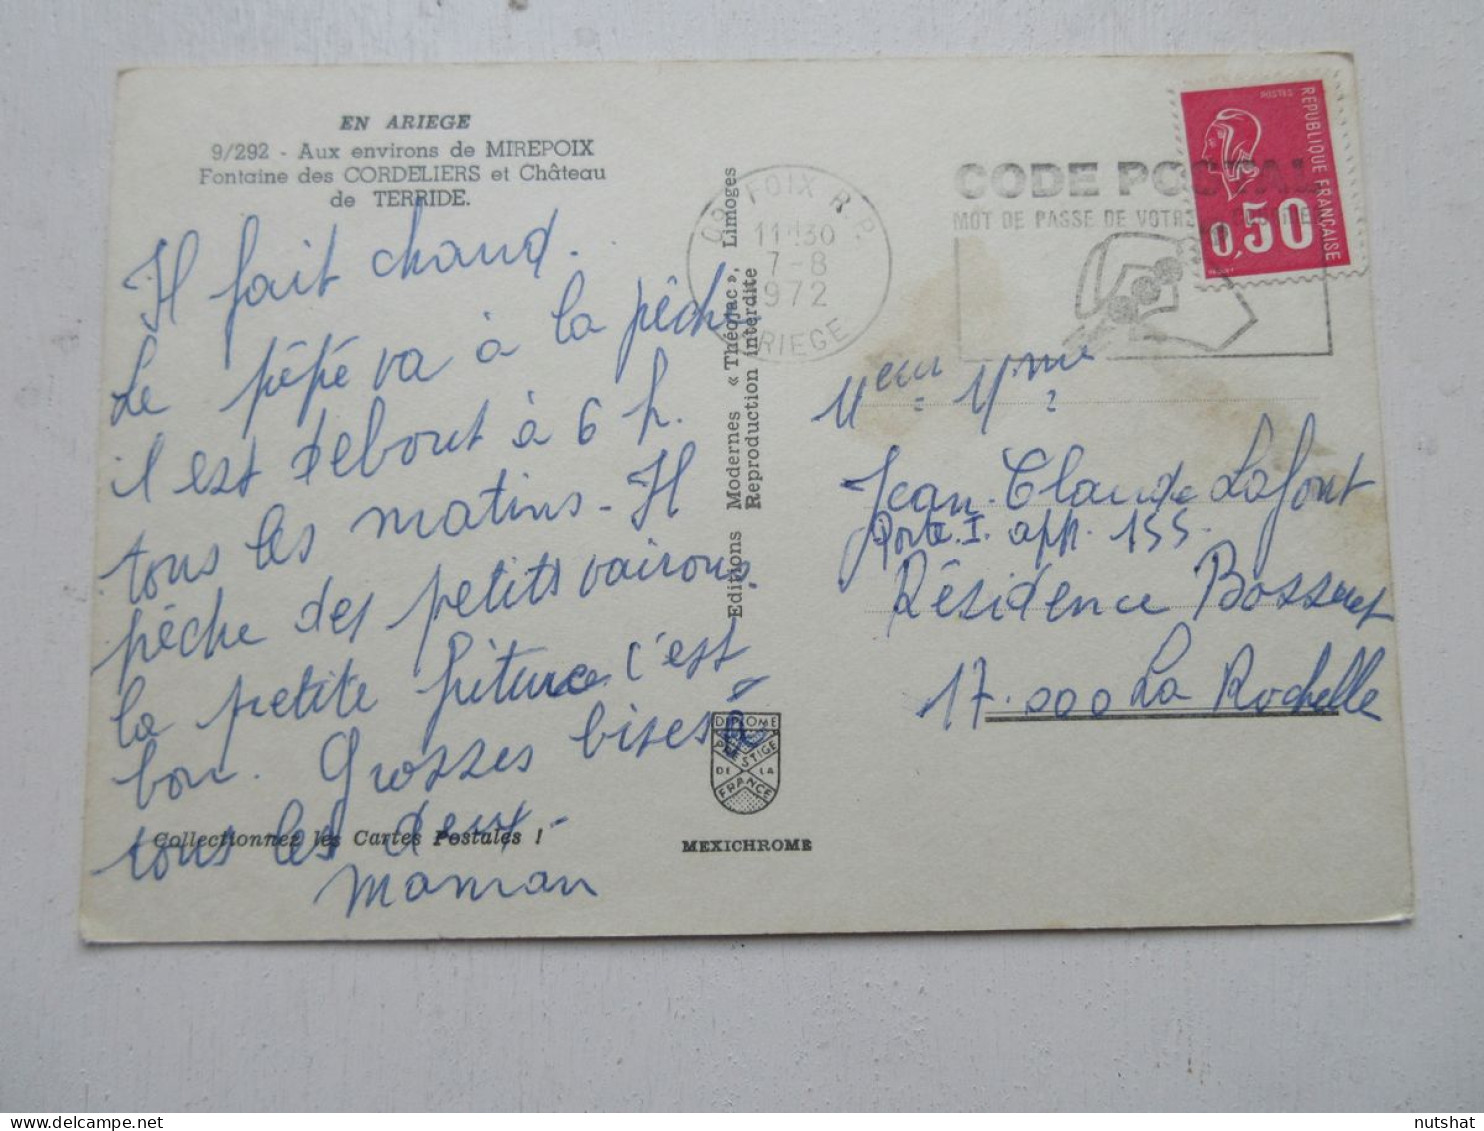 EN ARIEGE
9/292 - Aux environs de MIREPOIX
Fontaine des CORDELIERS et Château
de TERRIDE.
Il fait chaud.
Le pépé va à la pêche
il est debout à 6 h.
tous les matins - Il
pêche des petits vairons,
la petite friture c'est
bon. Grosses bises à
tous les deux -
maman
Collectionnez les Cartes Postales !
Editions Modernes « Théojac », Limoges
Reproduction interdite
DIPLOME
PRESTIGE
DE LA
FRANCE
MEXICHROME
09 FOIX R.P.
11H30
7-8
1972
ARIEGE
CODE POSTAL
MOT DE PASSE DE VOTRE
POSTES
REPUBLIQUE FRANÇAISE
0,50
Mme
Jean-Claude Lafont
Porte I. app. 155.
Résidence Bossuet
17.000 La Rochelle
nutshat